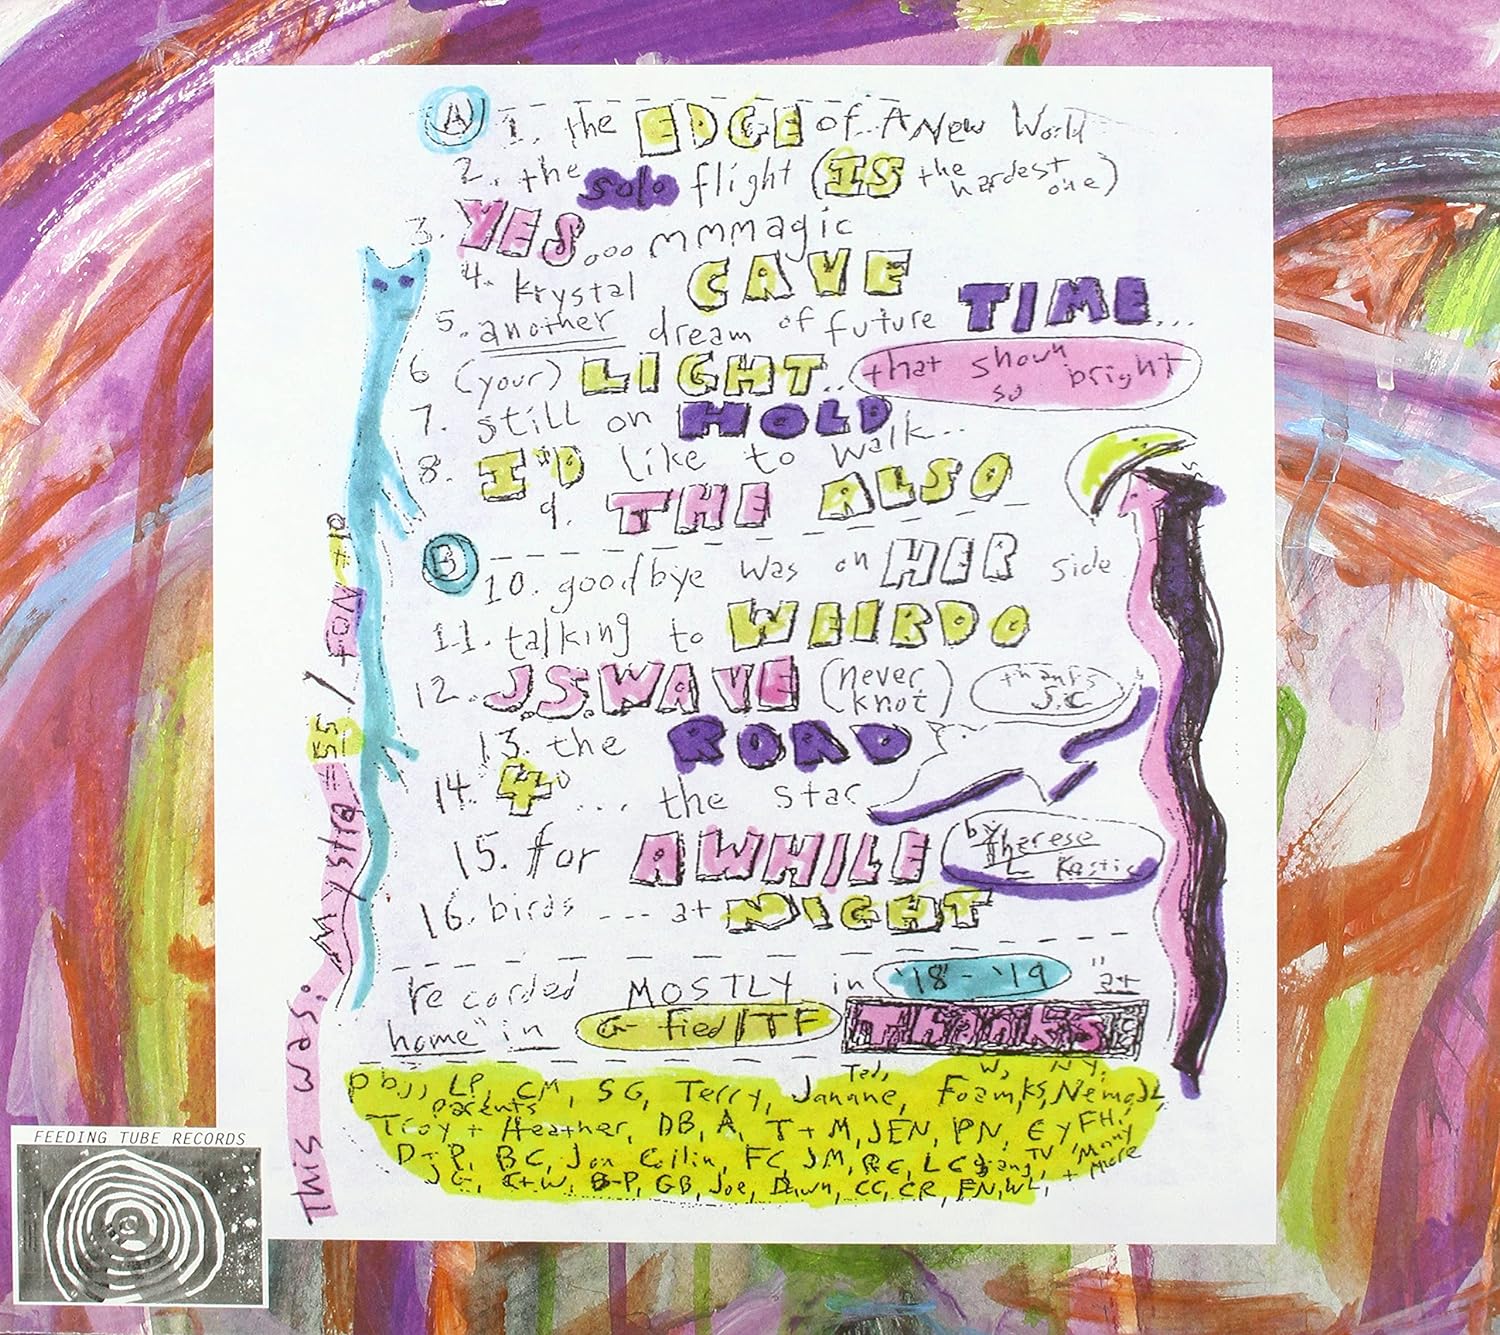 A 1. the EDGE of A New World
2. the solo flight (IS the hardest one)
3. YES...mmmagic
4. krystal CAVE
5. another dream of future TIME...
6 (your) LIGHT.. that shown so bright
7. still on HOLD
8. I'D like to walk...
9. THE ALSO
B 10. goodbye was on HER side
11. talking to WEIRDO
12. J.S. WAVE (never knot) thanks J.C.
13. the ROAD
14. ... the star
15. for AWHILE by Therese L
16. birds --- at NIGHT
recorded MOSTLY in '18-'19 "at
home" in G-fied/TF THANKS
pbjj, LP, CM, SG, Terry, Janane, Ted, Foam, KS,
parents
Troy + Heather, DB, A, T+M, JEN, PN, EY, FH,
D+P, BC, Jon Collin, FC, JM, RC, LC
JG, C+W, B-P, GB, Joe, Dawn, CC, CR, FN, WL, + More
This was: Mystra =55 / NOT
FEEDING TUBE RECORDS